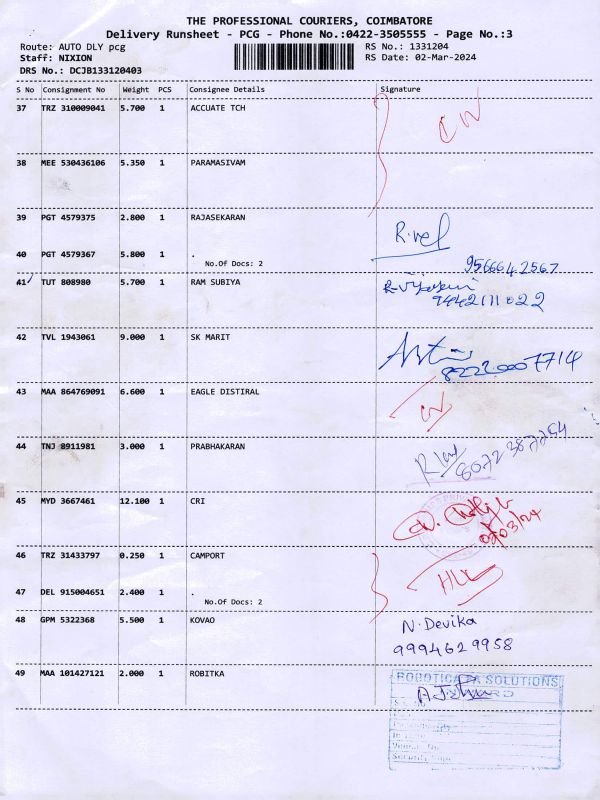 THE PROFESSIONAL COURIERS, COIMBATORE
Delivery Runsheet - PCG - Phone No.:0422-3505555 - Page No.:3
Route: AUTO DLY pcg
RS No.: 1331204
Staff: NIXION
RS Date: 02-Mar-2024
DRS No.: DCJB133120403
S No Consignment No Weight PCS Consignee Details Signature
37 TRZ 310009041 5.700 1 ACCUATE TCH
38 MEE 530436106 5.350 1 PARAMASIVAM
39 PGT 4579375 2.800 1 RAJASEKARAN
R.vel
40 PGT 4579367 5.800 1 .
No.Of Docs: 2
9566642567
41 TUT 808980 5.700 1 RAM SUBIYA
9442111022
42 TVL 1943061 9.000 1 SK MARIT
82220007714
43 MAA 864769091 6.600 1 EAGLE DISTIRAL
44 TNJ 8911981 3.000 1 PRABHAKARAN
45 MYD 3667461 12.100 1 CRI
46 TRZ 31433797 0.250 1 CAMPORT
47 DEL 915004651 2.400 1 .
No.Of Docs: 2
48 GPM 5322368 5.500 1 KOVAO
N.Devika
9994629958
49 MAA 101427121 2.000 1 ROBITKA
SOLUTIONS